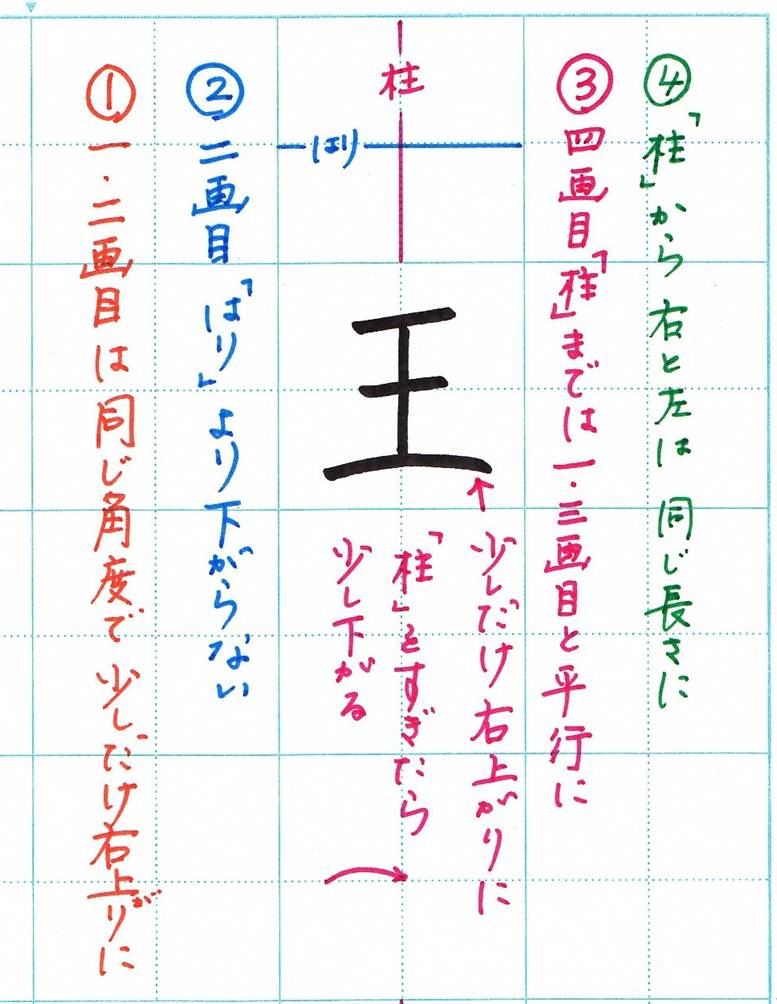 ④「柱」から右と左は同じ長さに
③四画目「柱」までは一・三画目と平行に
少しだけ右上がりに
「柱」をすぎたら
少し下がる
柱
はり
王
↑
②二画目「はり」より下がらない
①一・二画目は同じ角度で少しだけ右上がりに